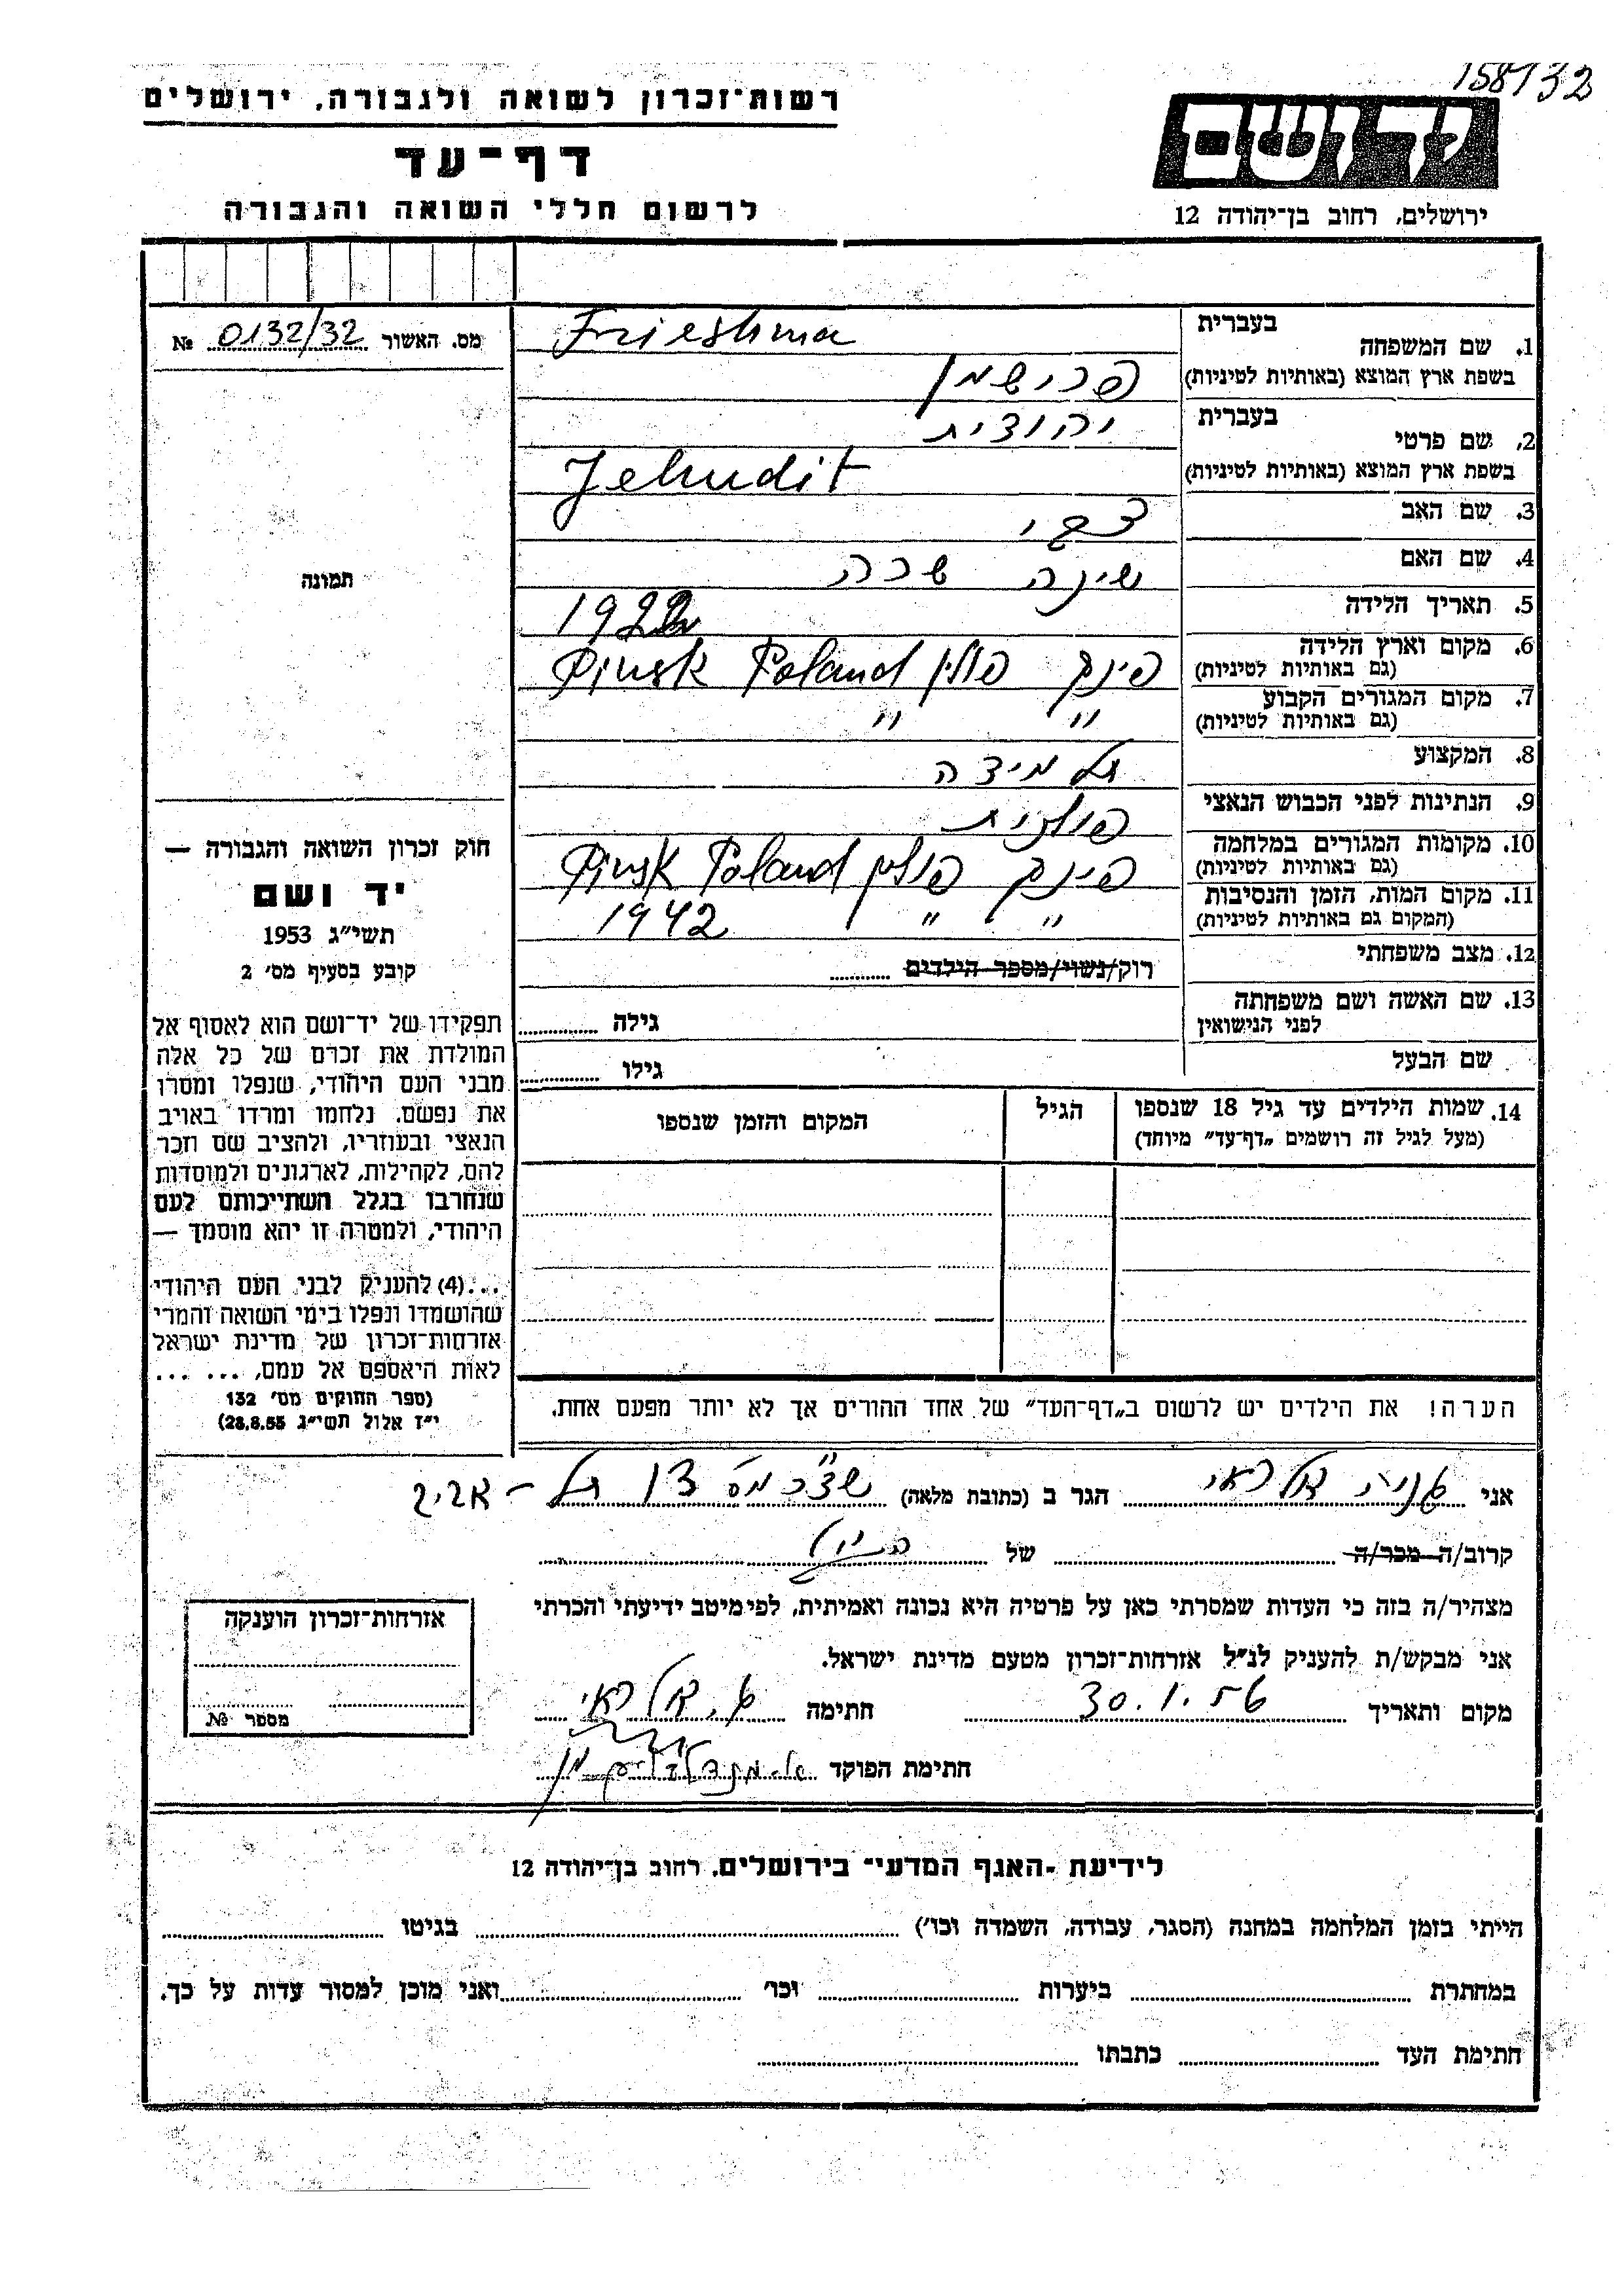 158/32
רשות־זכרון לשואה ולגבורה, ירושלים
דף־עד
לרשום חללי השואה והגבורה
יד ושם
ירושלים, רחוב בן־יהודה 12
מס. האשור 0132/32 №
תמונה
חוק זכרון השואה והגבורה —
יד ושם
תשי״ג 1953
קובע בסעיף מס׳ 2
תפקידו של יד־ושם הוא לאסוף אל
המולדת את זכרם של כל אלה
מבני העם היהודי, שנפלו ומסרו
את נפשם, נלחמו ומרדו באויב
הנאצי ובעוזריו, ולהציב שם וזכר
להם, לקהילות, לארגונים ולמוסדות
שנחרבו בגלל השתייכותם לעם
היהודי, ולמטרה זו יהא מוסמך —
...(4) להעניק לבני העם היהודי
שהושמדו ונפלו בימי השואה והמרי
אזרחות־זכרון של מדינת ישראל
לאות היאספם אל עמם, ... ...
(ספר החוקים מס׳ 132
י״ז אלול תשי״ג 28.8.53)
בעברית Frieshma
1. שם המשפחה
בשפת ארץ המוצא (באותיות לטיניות) פרישמן
בעברית יהודית
2. שם פרטי
בשפת ארץ המוצא (באותיות לטיניות) Jehudit
3. שם האב צבי
4. שם האם שינה שרה
5. תאריך הלידה 1922
6. מקום וארץ הלידה פינסק פולין Pinsk Poland
(גם באותיות לטיניות)
7. מקום המגורים הקבוע " "
(גם באותיות לטיניות)
8. המקצוע תלמידה
9. הנתינות לפני הכבוש הנאצי פולנית
10. מקומות המגורים במלחמה פינסק פולין Pinsk Poland
(גם באותיות לטיניות)
11. מקום המות, הזמן והנסיבות " " 1942
(המקום גם באותיות לטיניות)
12. מצב משפחתי רווק/נשוי/מספר הילדים
13. שם האשה ושם משפחתה גילה
לפני הנישואין
שם הבעל גילו
14. שמות הילדים עד גיל 18 שנספו הגיל המקום והזמן שנספו
(מעל לגיל זה רושמים „דף־עד״ מיוחד)
הערה! את הילדים יש לרשום ב„דף־העד״ של אחד ההורים אך לא יותר מפעם אחת.
אני הגר ב (כתובת מלאה) תל-אביב
קרוב/ה מכר/ה של
מצהיר/ה בזה כי העדות שמסרתי כאן על פרטיה היא נכונה ואמיתית, לפי מיטב ידיעתי והכרתי
אני מבקש/ת להעניק לנ״ל אזרחות־זכרון מטעם מדינת ישראל.
מקום ותאריך 30.1.56 חתימה
חתימת הפוקד
אזרחות־זכרון הוענקה
מספר №
לידיעת ־האגף המדעי־ בירושלים, רחוב בן־יהודה 12
הייתי בזמן המלחמה במחנה (הסגר, עבודה, השמדה וכו׳) בגיטו
במחתרת ביערות וכו׳ ואני מוכן למסור עדות על כך.
חתימת העד כתבתו